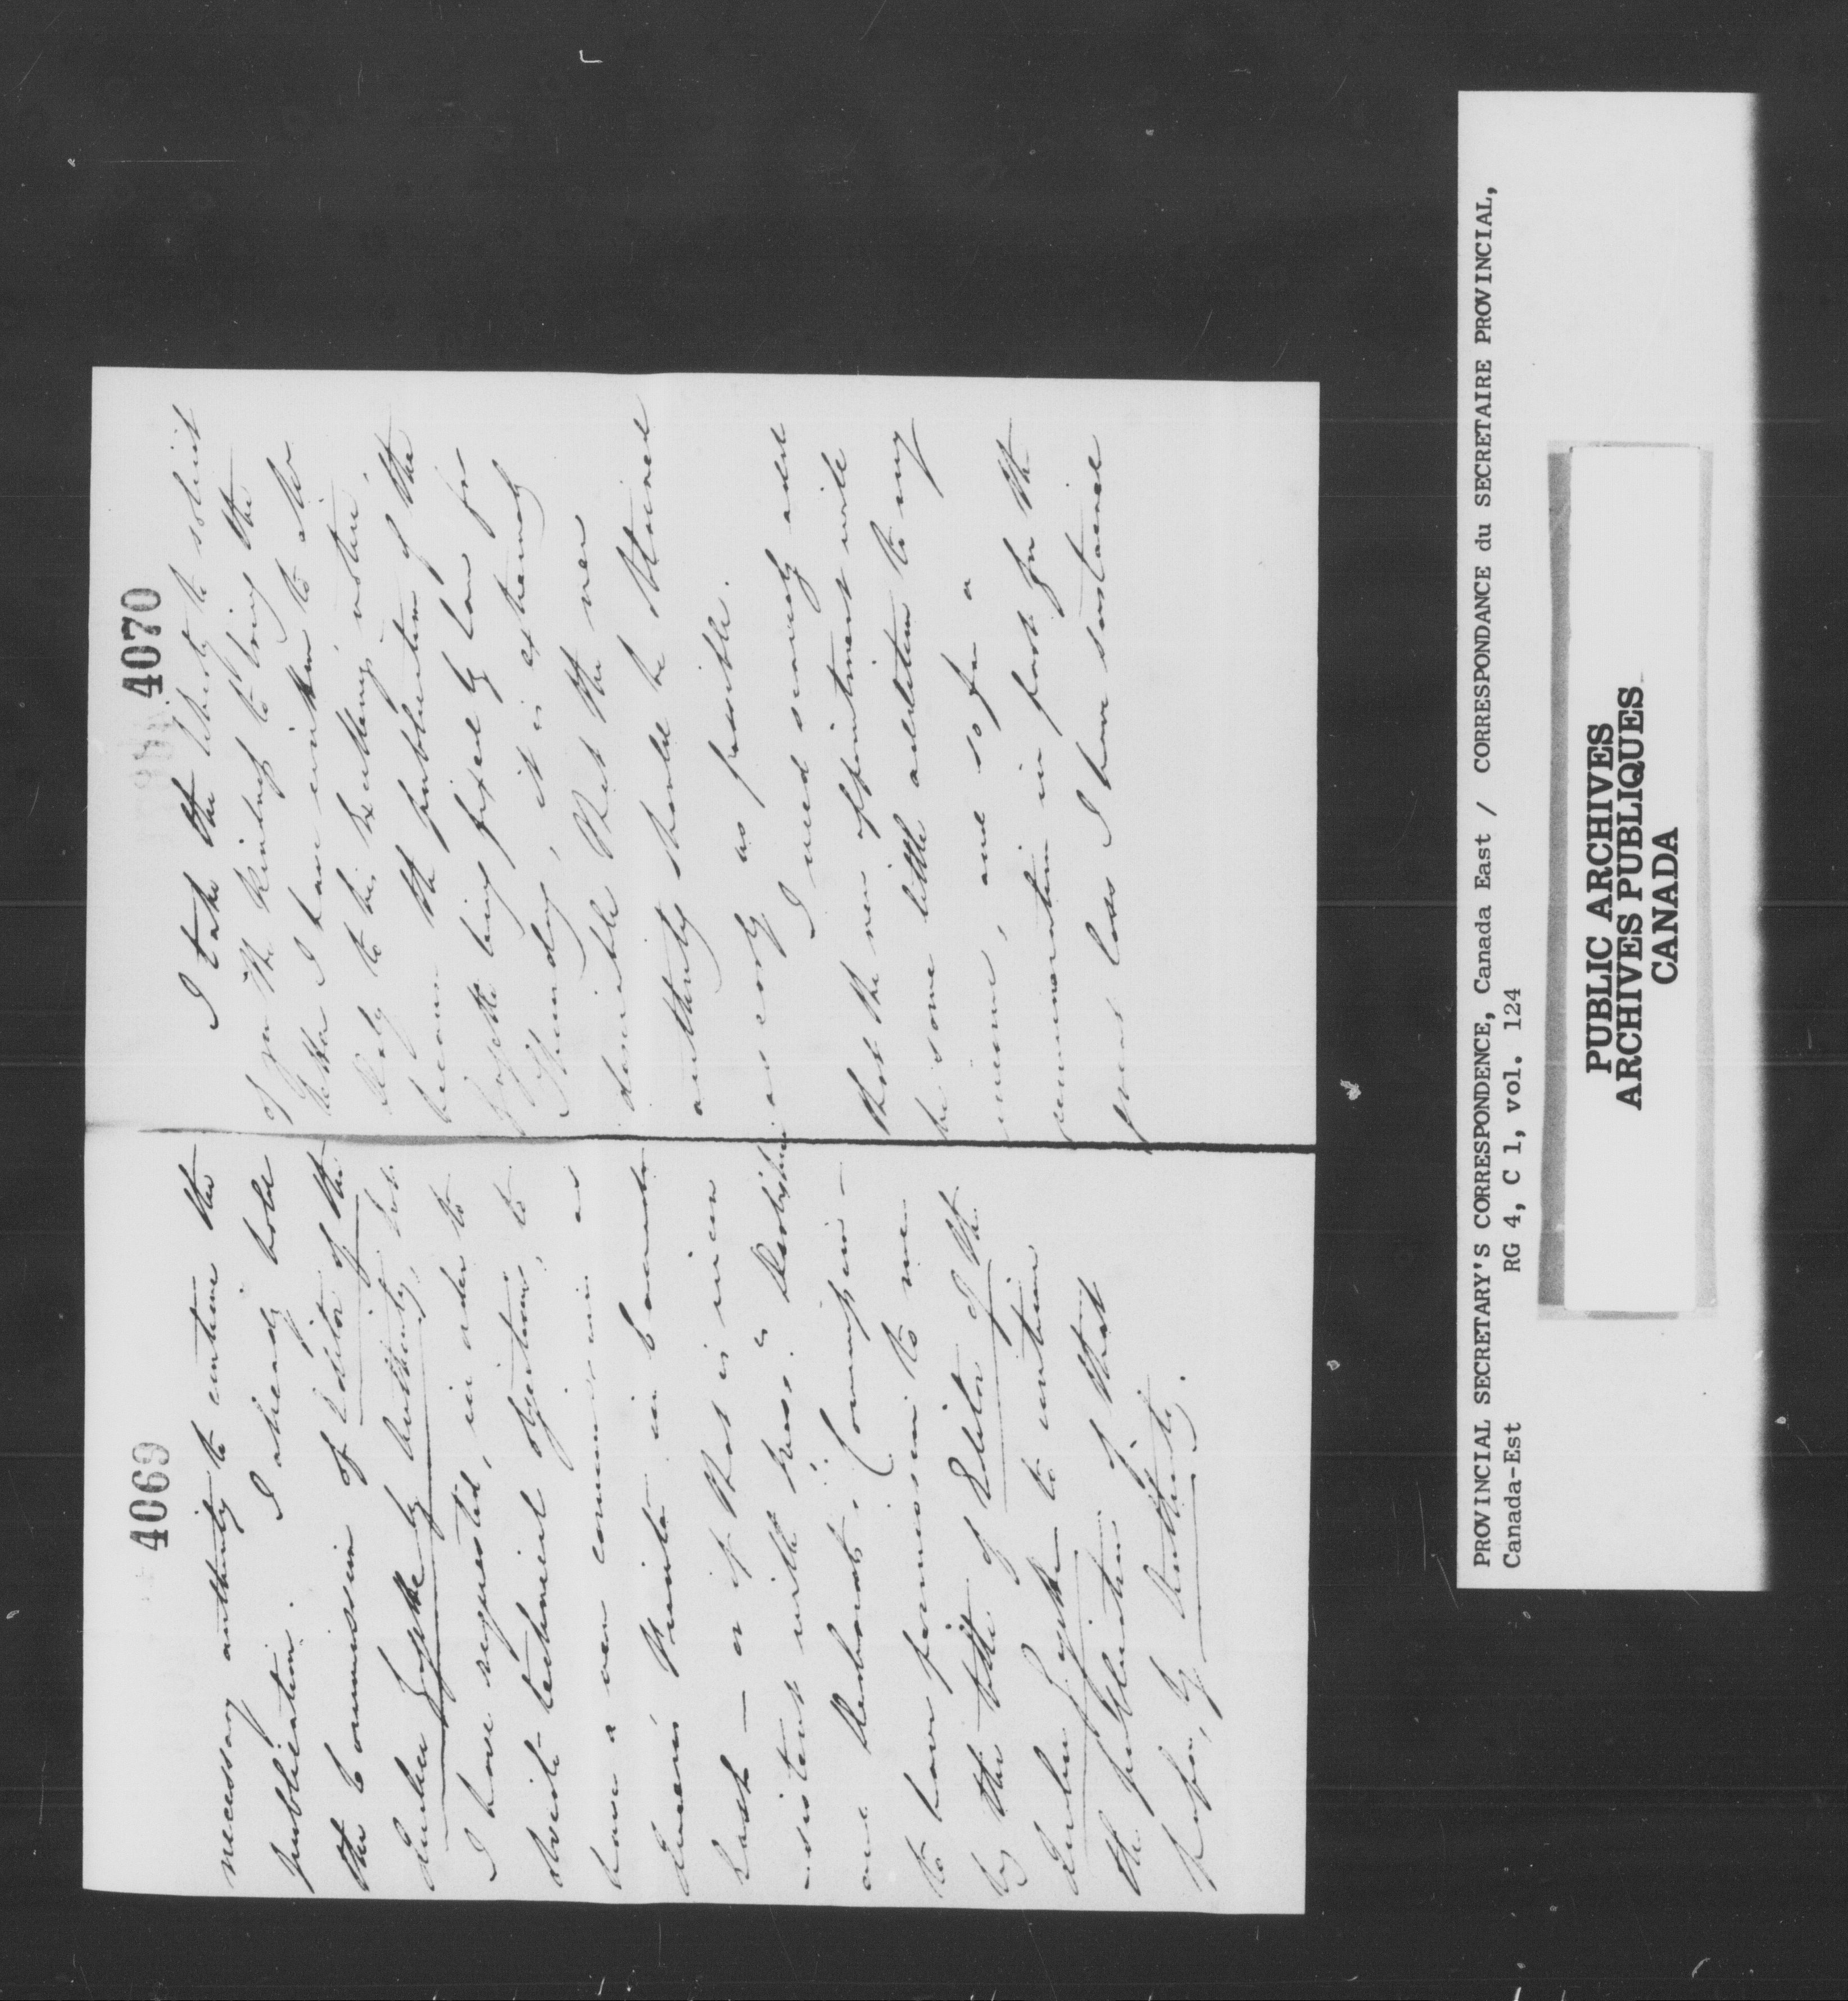 4069
necessary authority to continue the
publication. I already hold
the Commission of Editor of the
Quebec Gazette by Authority, but
I have requested, in order to
obviate technical objections, to
have a new commission as
Queen's Printer in Canada
East — or if that is incon
-sistent with Mess.rs Derbishire
and Desbarats' Commission —
to have permission to use
by the title of Editor of the
Quebec Gazette to continue
the publication of that
paper, by Authority.
4070
I take the liberty to solicit
of you the kindness to bring the
letter I have written to Mr
Daly to his Excellency's notice,
because the publication of the
Gazette being fixed by law for
Thursday, it is extremely
desirable that the new
authority should be obtained
as early as possible.
I need scarcely add
that the new appointment will
be some little addition to my
income, and so far a
remuneration in part for the
great loss I have sustained
PROVINCIAL SECRETARY'S CORRESPONDENCE, Canada East / CORRESPONDANCE du SECRETAIRE PROVINCIAL,
Canada-Est RG 4, C 1, vol. 124
PUBLIC ARCHIVES
ARCHIVES PUBLIQUES
CANADA